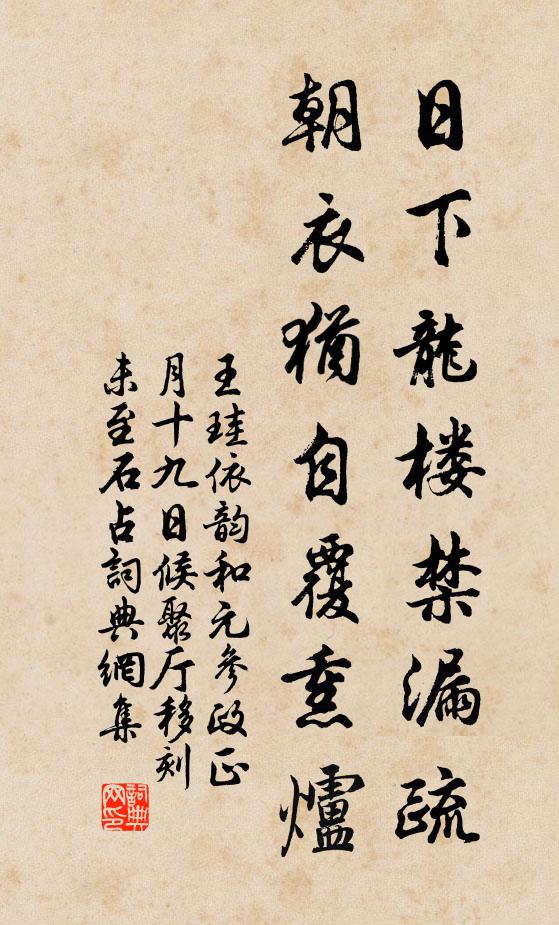 日下龍楼禁漏疏
朝衣猶自覆熏爐
王珪依韵和元參政正
月十九日候聚厅移刻
未至石占詞典網集
詞典
网印